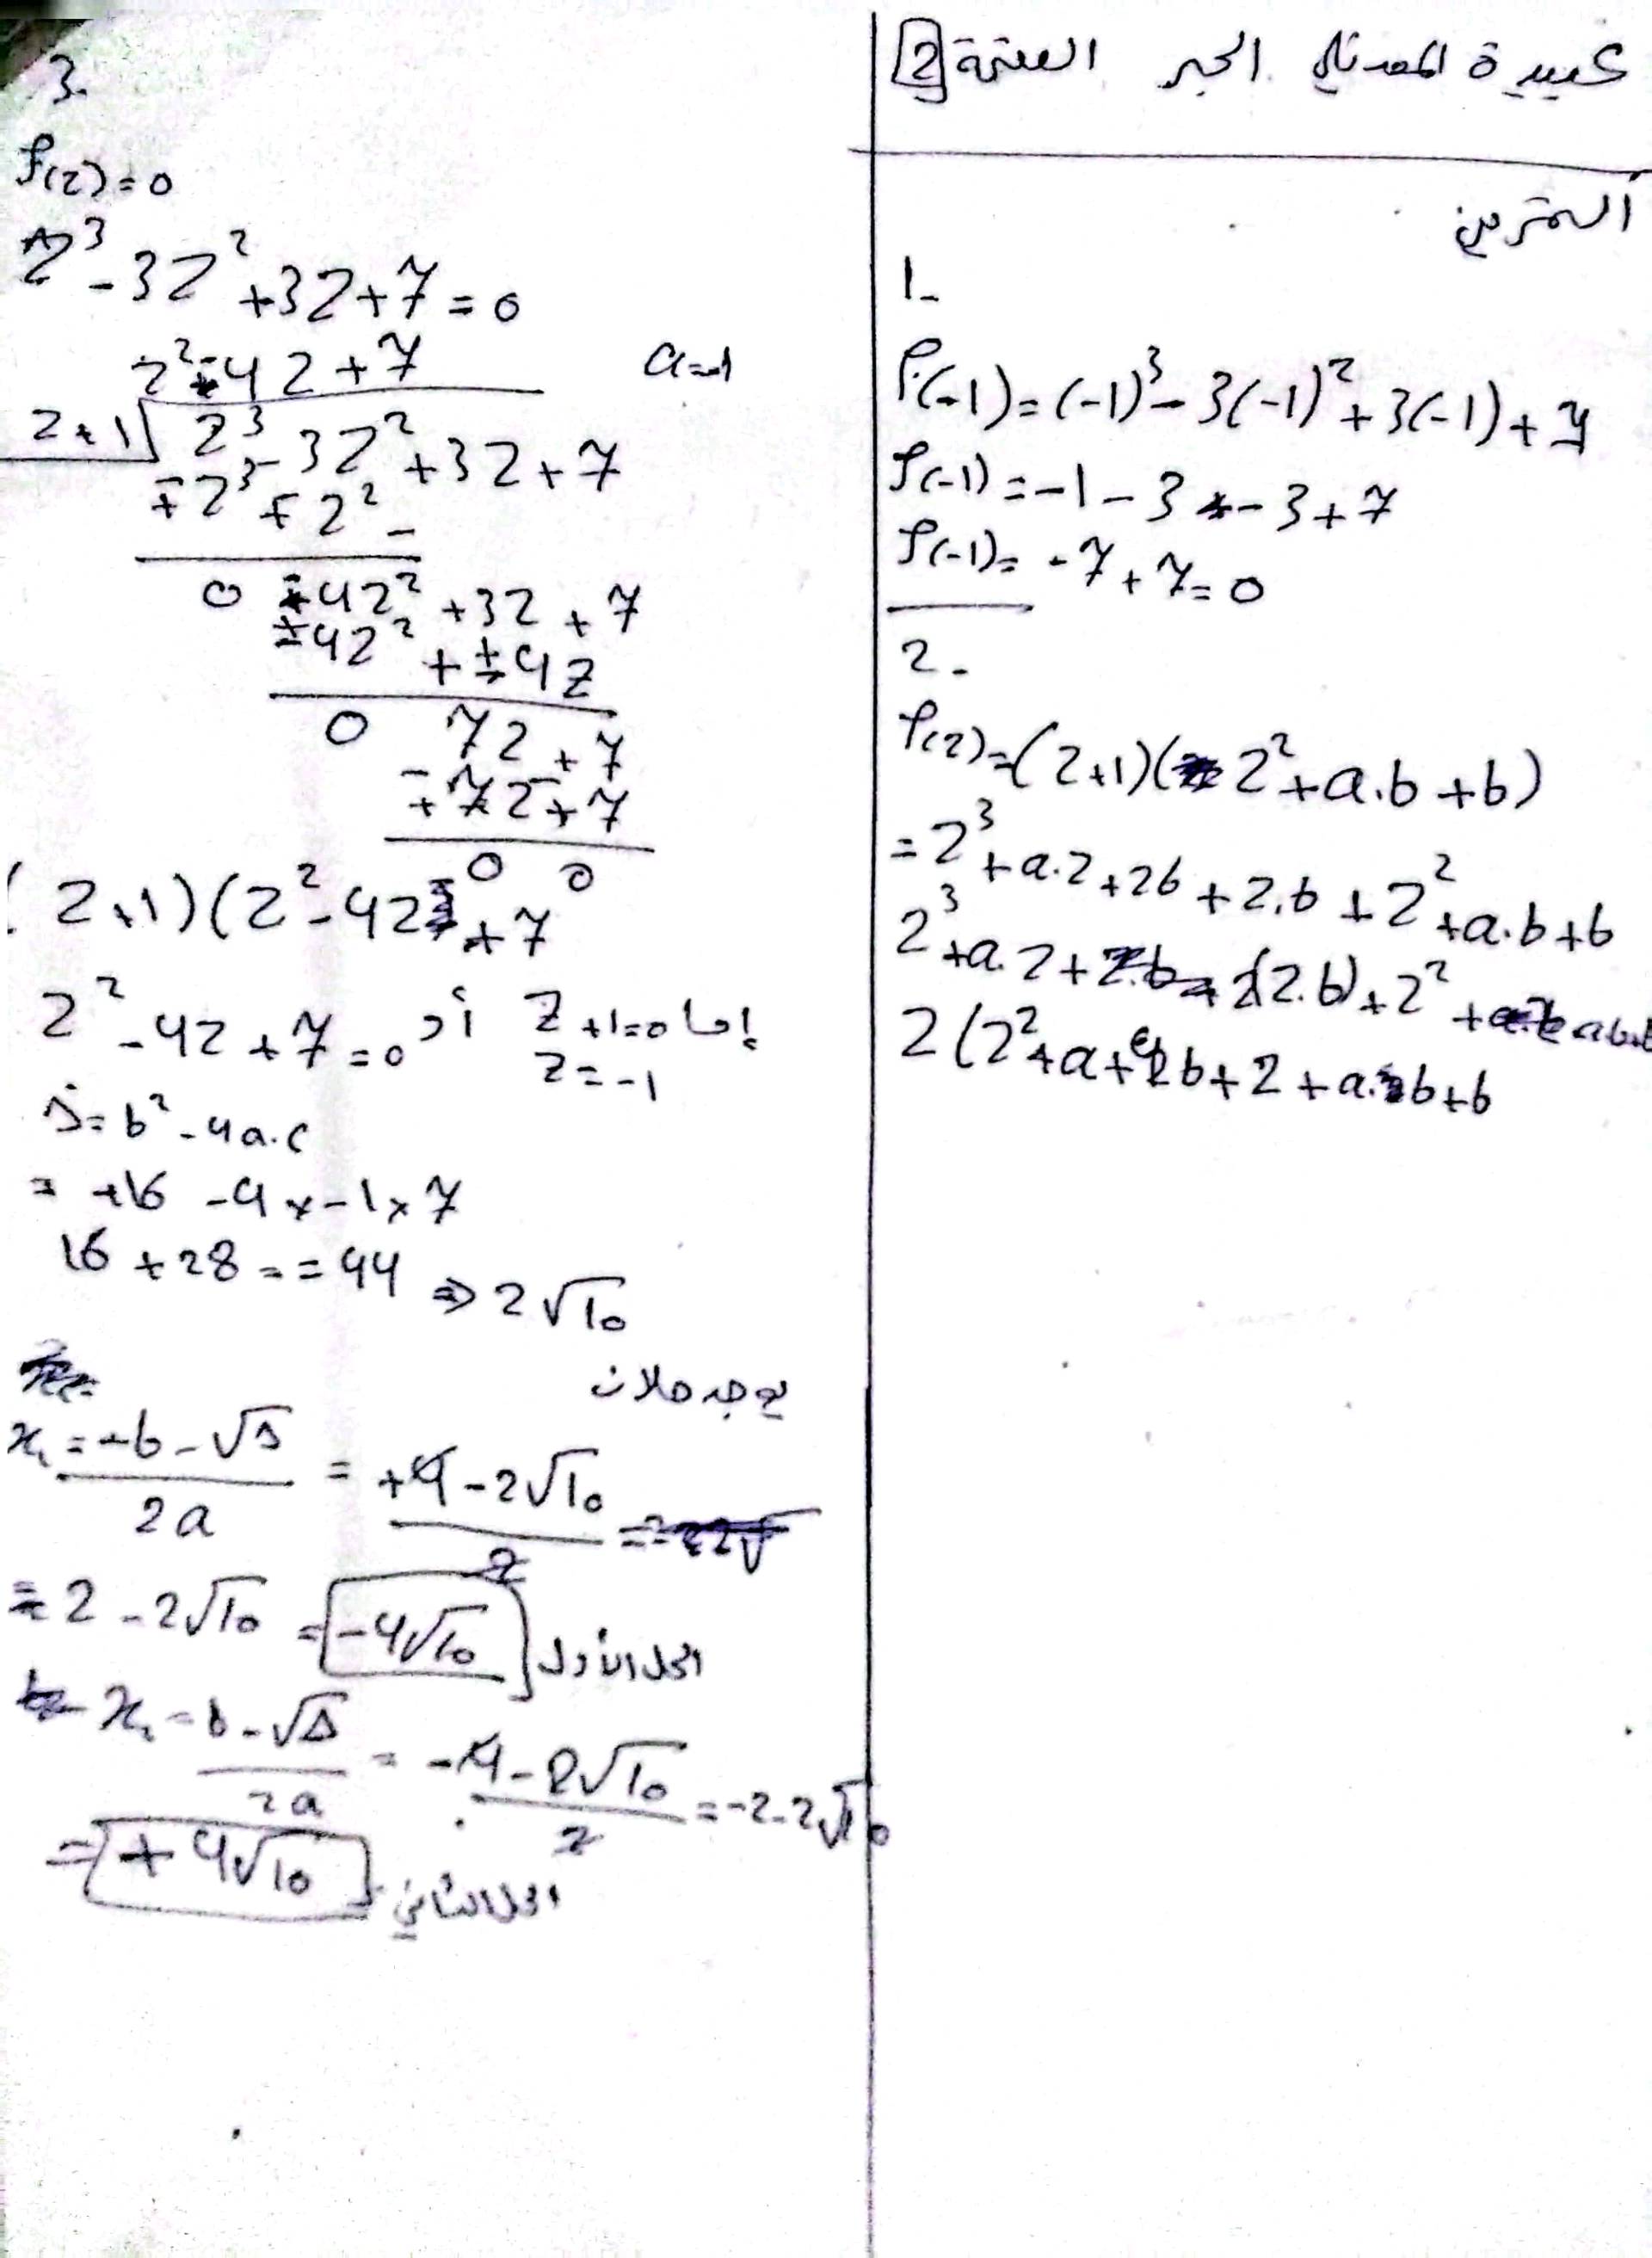 عبيدة المعدني الجبر الفئة 2
التمرين
1-
P(-1)=(-1)³-3(-1)²+3(-1)+7
P(-1)=-1-3-3+7
P(-1)=-7+7=0
2-
P(z)=(z+1)(z²+a.b+b)
=z³+a.z+zb+z.b+z²+a.b+b
z³+a.z+2(z.b)+z²+ab+b
z(z²+a+2b+z+a.b+b
3.
P(z)=0
z³-3z²+3z+7=0
z²-4z+7 a=-1
z+1 z³-3z²+3z+7
∓z³∓z²
0 -4z²+3z+7
±4z²+±4z
0 7z+7
∓7z∓7
0 0
(z+1)(z²-4z+7
إما z+1=0 أو z²-4z+7=0
z=-1
Δ=b²-4a.c
= +16 -4×-1×7
16+28==44 ⇒ 2√10
يوجد حلان
x₁=-b-√Δ/2a = +4-2√10/2
=2-2√10 = -4√10 الحل الأول
x₂=b-√Δ/2a = -4-2√10/2 = -2-2√10
= +4√10 الحل الثاني